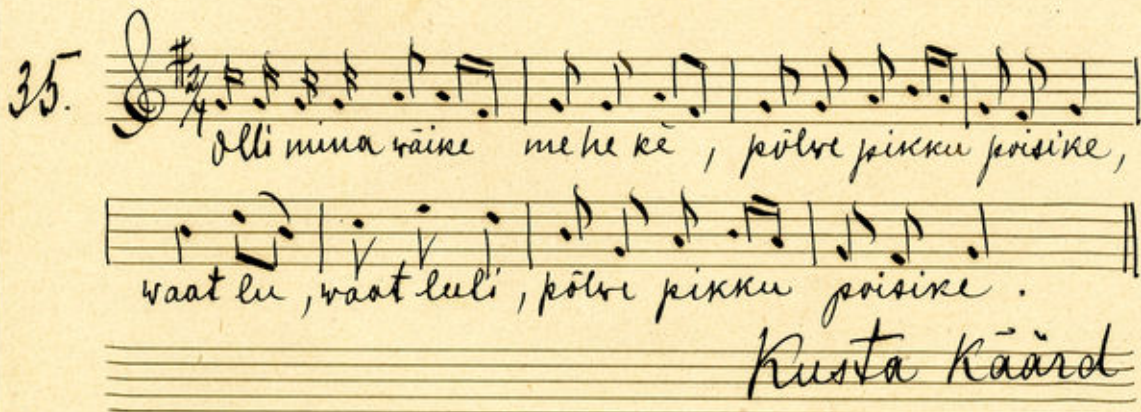 35.
2/4
Olli mina wäike meheke, põlwe pikku poisike,
waat lu, waat luli, põlwe pikku poisike.
Kusta Käärd